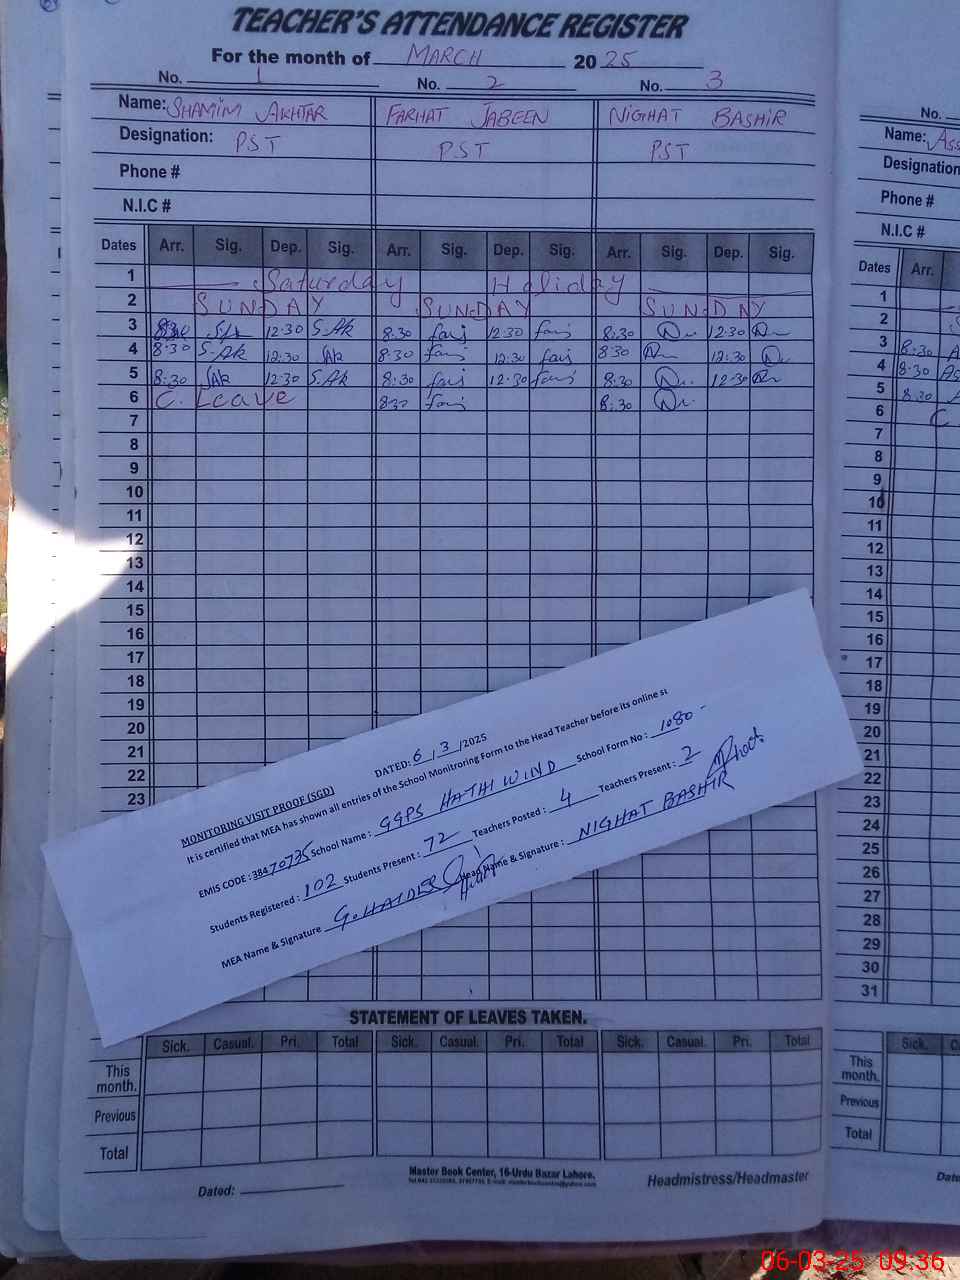 TEACHER'S ATTENDANCE REGISTER
For the month of MARCH 2025
No. 1 No. 2 No. 3
Name: SHAMIM AKHTAR FARHAT JABEEN NIGHAT BASHIR
Designation: PST PST PST
Phone #
N.I.C #
Dates Arr. Sig. Dep. Sig. Arr. Sig. Dep. Sig. Arr. Sig. Dep. Sig.
1 Saturday Holiday
2 SUNDAY SUNDAY SUNDAY
3 8:30 12:30 S.Ak 8:30 12:30 8:30 12:30
4 8:30 S.Ak 12:30 SAk 8:30 12:30 8:30 12:30
5 8:30 SAk 12:30 S.Ak 8:30 12:30 8:30 12:30
6 C. Leave 8:30 8:30
7
8
9
10
11
12
13
14
15
16
17
18
19
20
21
22
23
MONITORING VISIT PROOF (SGD) DATED: 6/3/2025
It is certified that MEA has shown all entries of the School Monitroring Form to the Head Teacher before its online
EMIS CODE: 38470735 School Name: GGPS HATHI WIND School Form No: 1080
Students Registered: 102 Students Present: 72 Teachers Posted: 4 Teachers Present: 2
MEA Name & Signature G. HAIDER Head Name & Signature: NIGHAT BASHIR
STATEMENT OF LEAVES TAKEN.
Sick. Casual. Pri. Total Sick. Casual. Pri. Total Sick. Casual. Pri. Total
This month.
Previous
Total
Dated: Master Book Center, 16-Urdu Bazar Lahore. Headmistress/Headmaster
No.
Name:
Designation
Phone #
N.I.C #
Dates Arr.
1
2
3 8:30
4 8:30
5 8:30
6 C
7
8
9
10
11
12
13
14
15
16
17
18
19
20
21
22
23
24
25
26
27
28
29
30
31
Sick.
This month.
Previous
Total
06-03-25 09:36